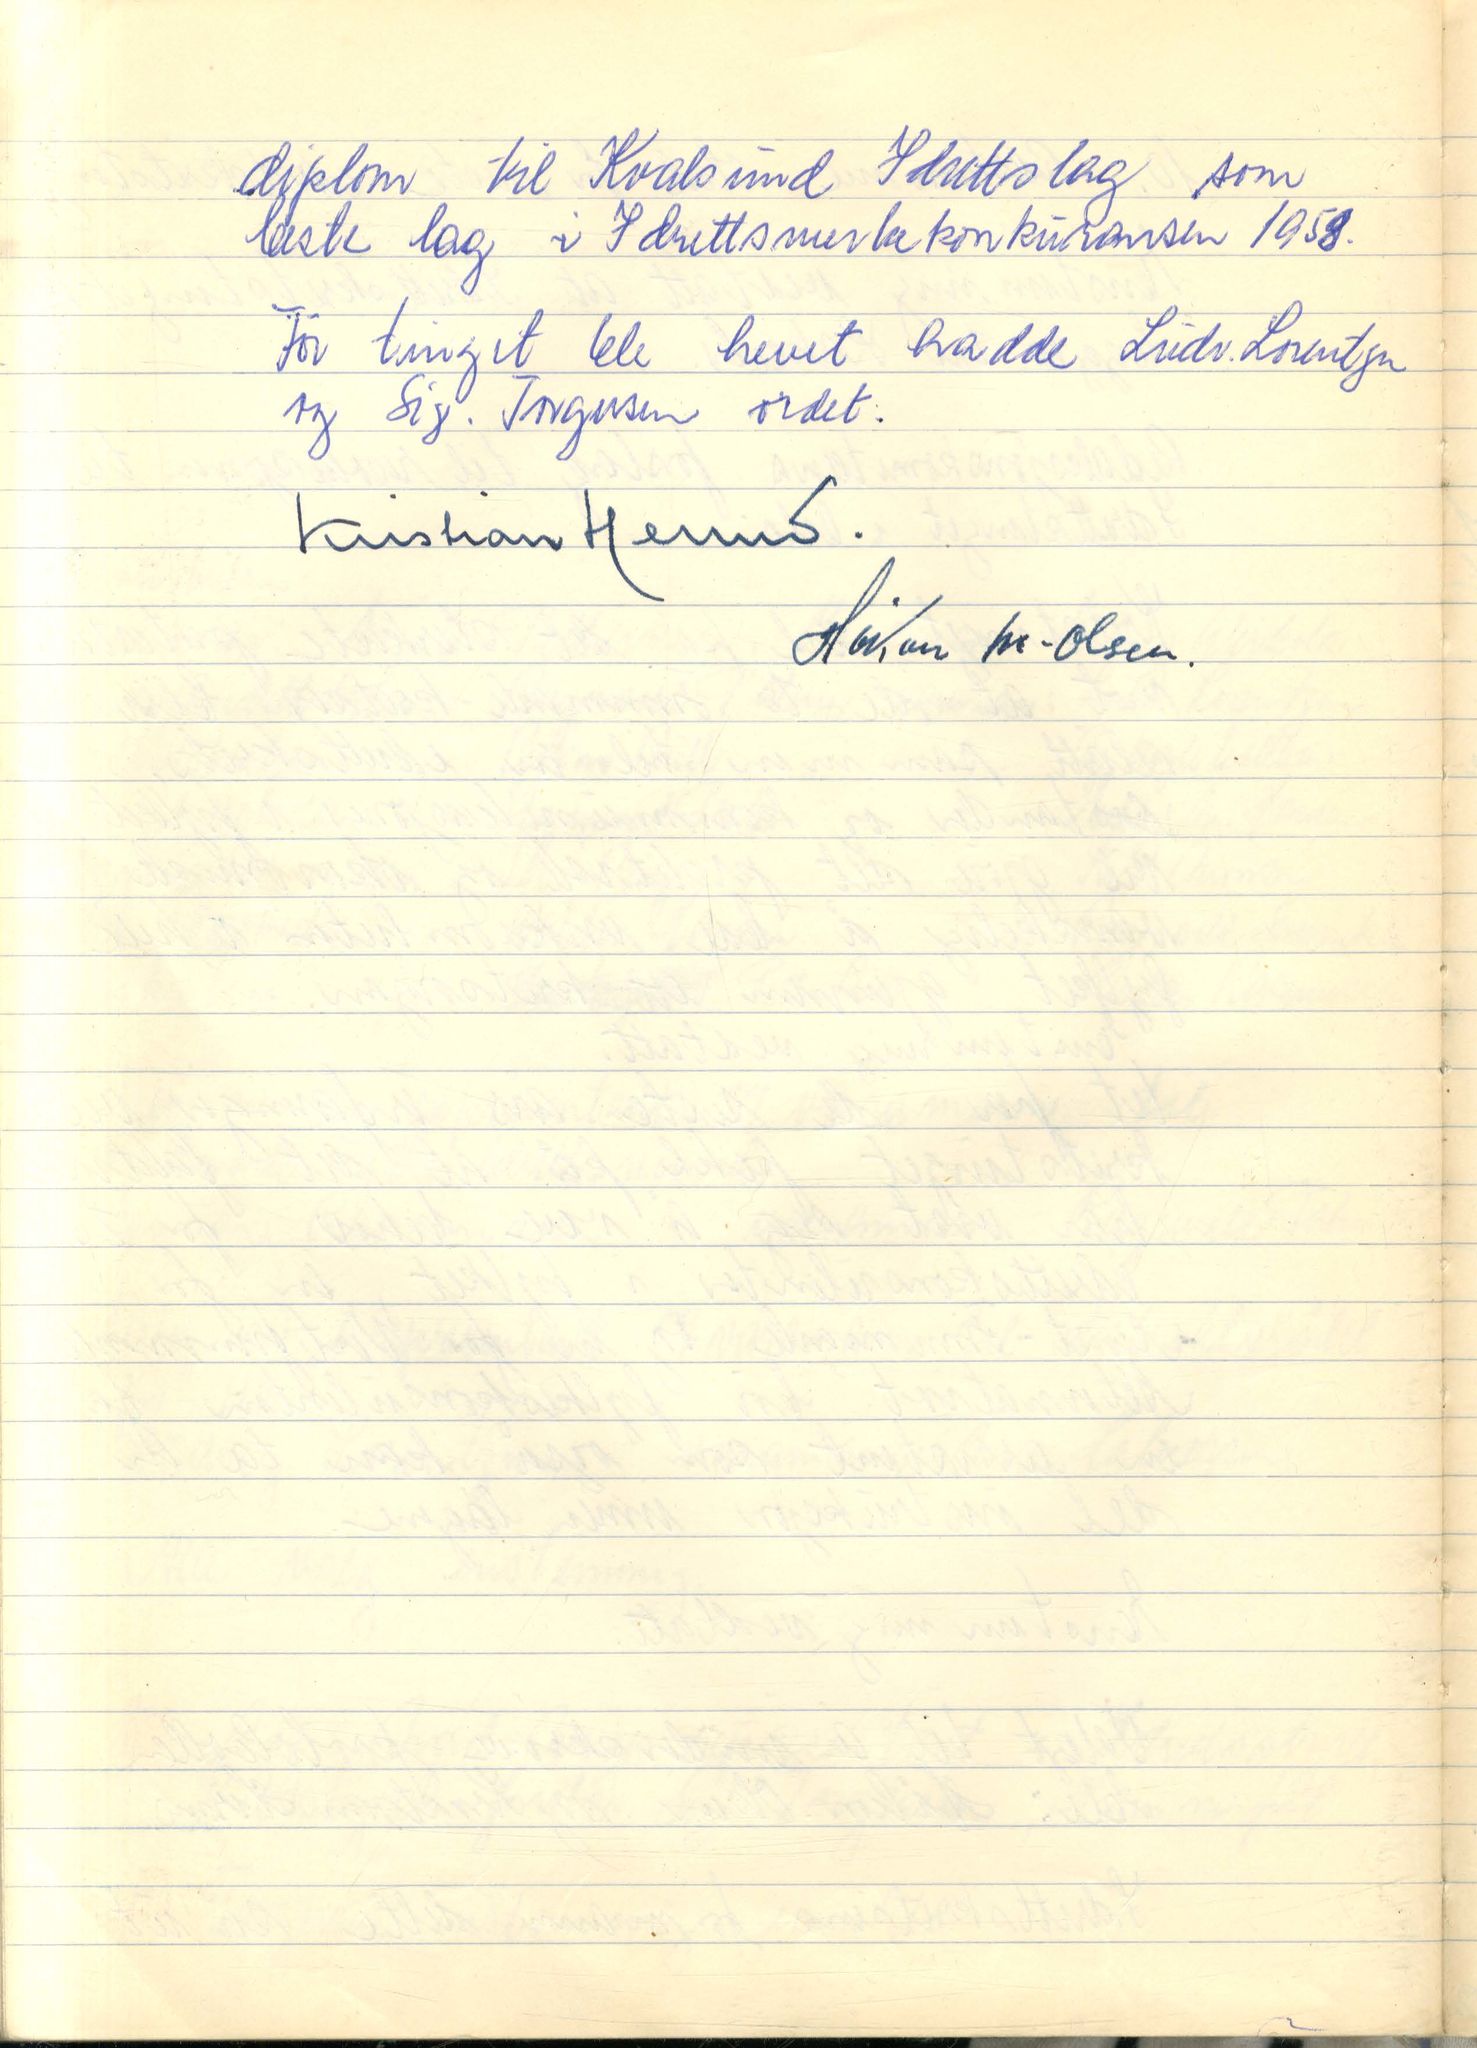 diplom til Kvalsund Idrettslag som
beste lag i Idrettsmerkekonkuransen 1958.
Før tinget ble hevet hadde Ludv. Lorentzen
og Sig. Torgersen ordet.
Kristian
Håkon M-Olsen.